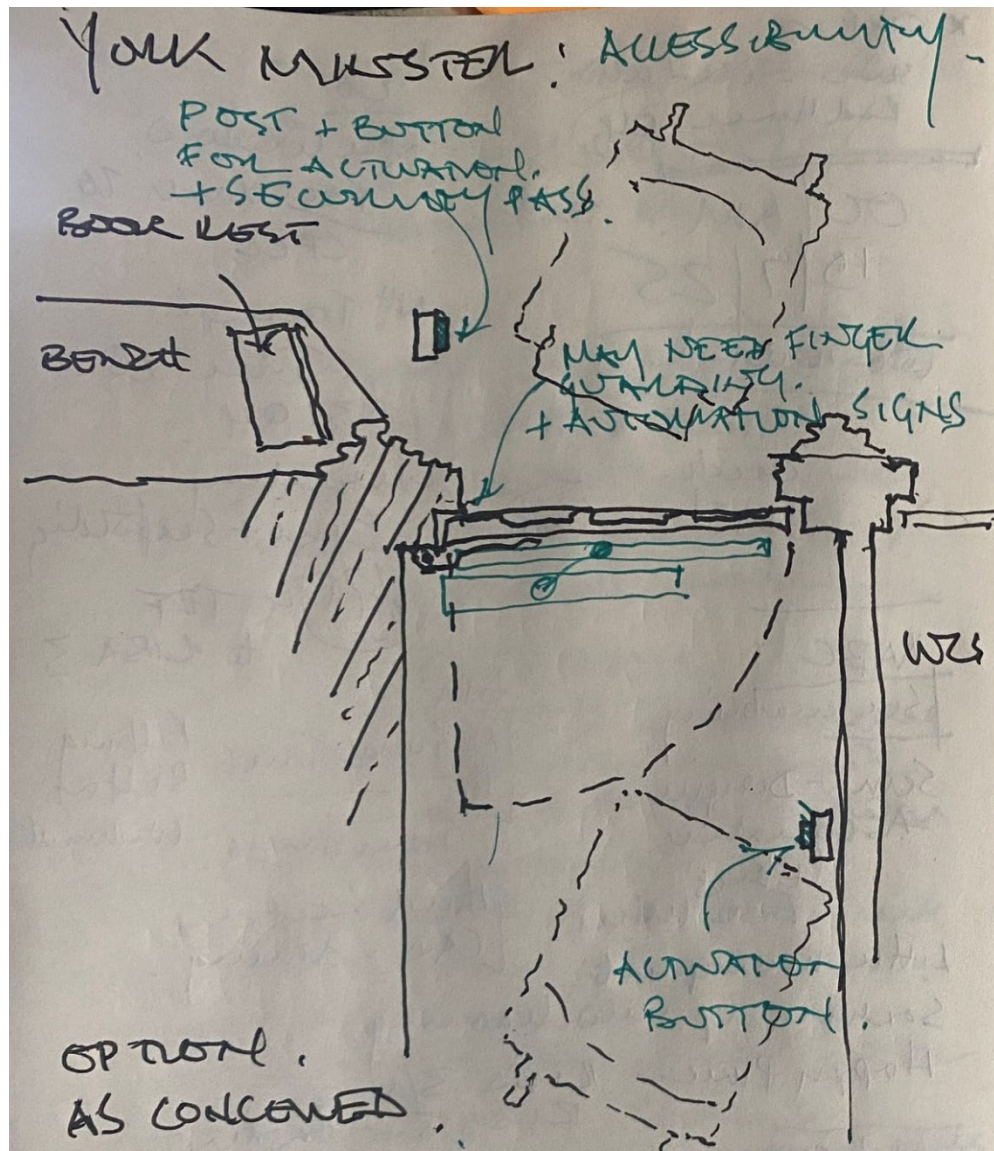 YORK MINSTER: ACCESSIBILITY.
POST + BUTTON
FOR ACTIVATION.
+ SECURITY PASS.
BOOK REST
BENCH
MAY NEED FINGER
GUARDING.
+ AUTOMATION SIGNS
WCs
ACTIVATION
BUTTON.
OPTION.
AS CONCEIVED.